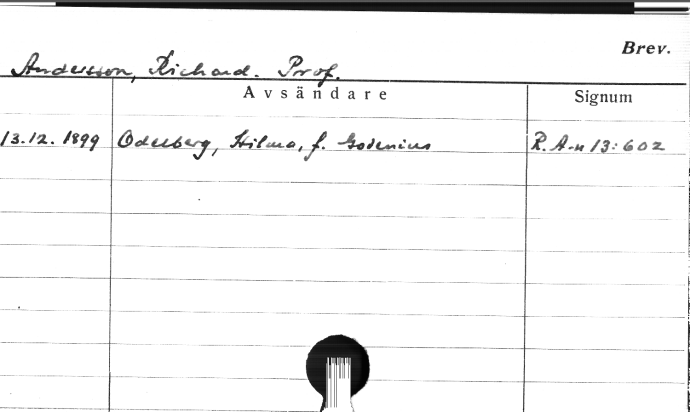 Brev.
Andersson, Richard. Prof.
Avsändare Signum
13.12.1899 Oderberg, Hilma, f. Godenius R.A-n 13:602